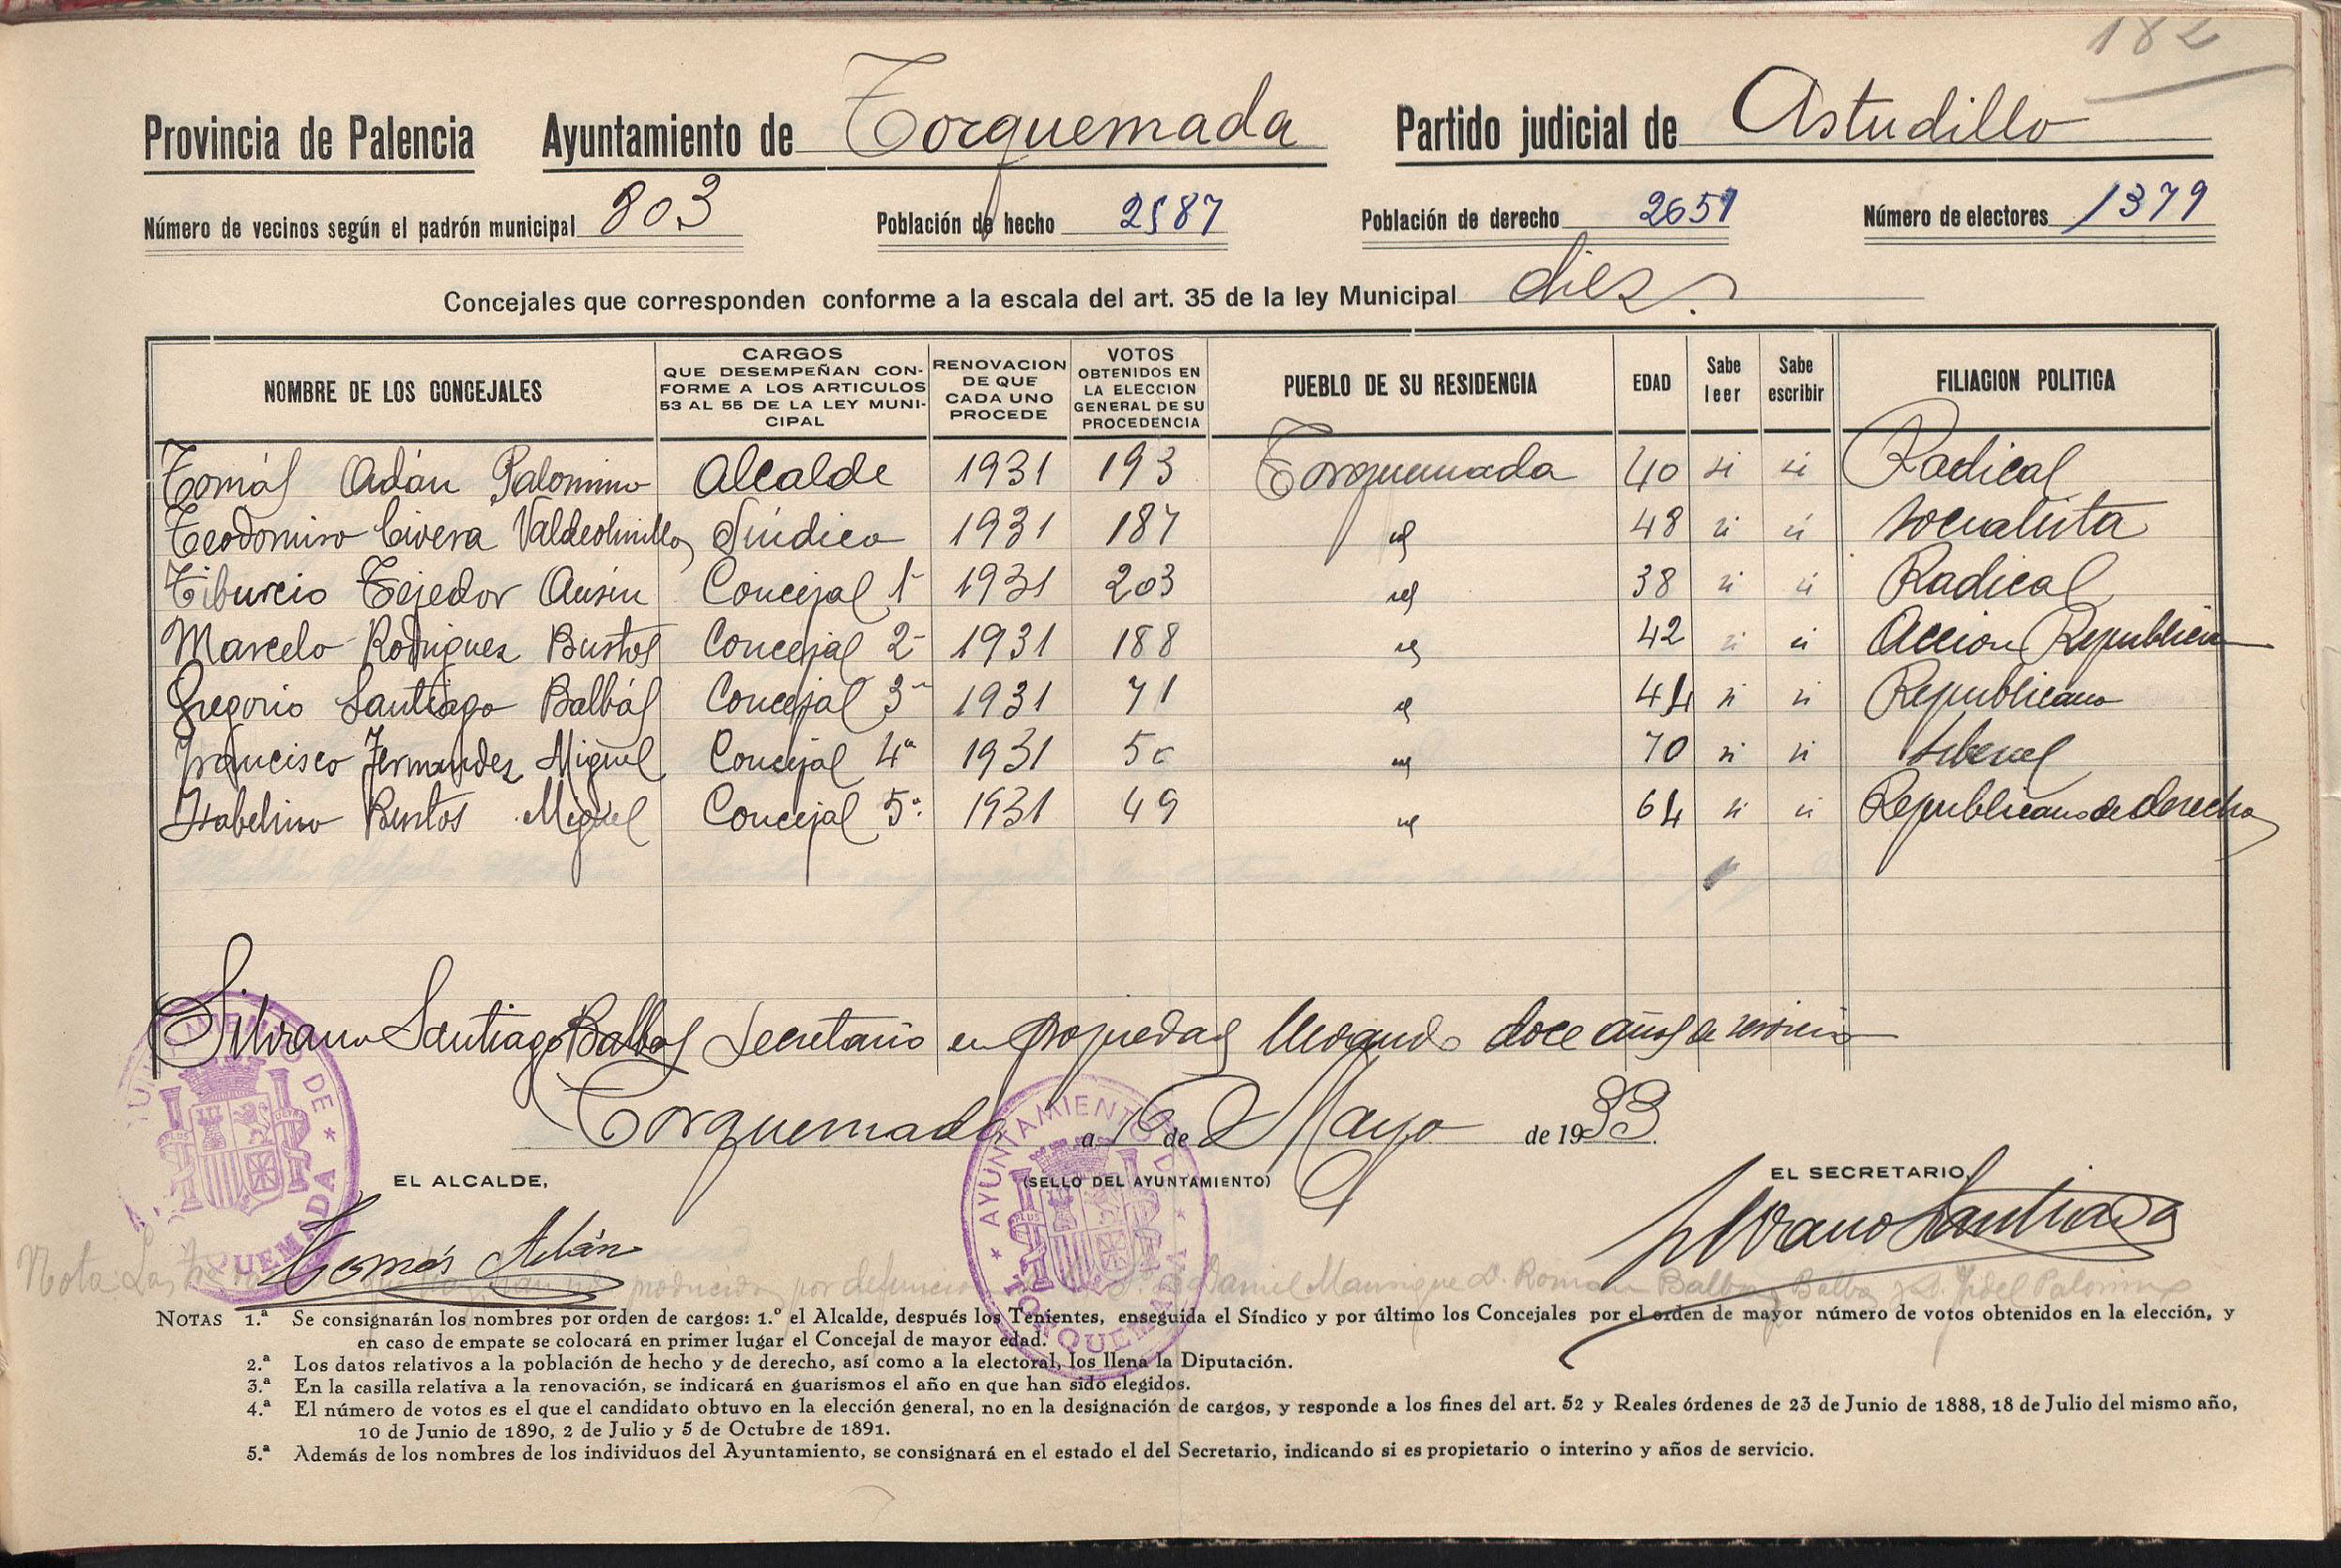 182
Provincia de Palencia Ayuntamiento de Torquemada Partido judicial de Astudillo
Número de vecinos según el padrón municipal 803 Población de hecho 2587 Población de derecho 2651 Número de electores 1379
Concejales que corresponden conforme a la escala del art. 35 de la ley Municipal diez.
NOMBRE DE LOS CONCEJALES CARGOS QUE DESEMPEÑAN CONFORME A LOS ARTICULOS 53 AL 55 DE LA LEY MUNICIPAL RENOVACION DE QUE CADA UNO PROCEDE VOTOS OBTENIDOS EN LA ELECCION GENERAL DE SU PROCEDENCIA PUEBLO DE SU RESIDENCIA EDAD Sabe leer Sabe escribir FILIACION POLITICA
Tomás Adán Palomino Alcalde 1931 193 Torquemada 40 si si Radical
Teodomiro Civera Valdeolmillos Síndico 1931 187 id 48 si si socialista
Tiburcio Tejedor Ausin Concejal 1º 1931 203 id 38 si si Radical
Marcelo Rodriguez Bustos Concejal 2º 1931 188 id 42 si si Accion Republicana
Gregorio Santiago Balbás Concejal 3º 1931 71 id 44 si si Republicano
Francisco Fernandez Miguel Concejal 4º 1931 50 id 70 si si Liberal
Isabelino Bustos Miguel Concejal 5º 1931 49 id 64 si si Republicano de derecha
Silvano Santiago Balbas Secretario en propiedad llevando doce años de servicio
Torquemada a 16 de Mayo de 1933.
EL ALCALDE, (SELLO DEL AYUNTAMIENTO) EL SECRETARIO,
AYUNTAMIENTO DE TORQUEMADA
AYUNTAMIENTO DE TORQUEMADA
Tomás Adán Silvano Santiago
Nota: Las producidas por defunción Daniel Manrique D. Roman Balbas Balbas y D. Fidel Palomino
NOTAS 1.ª Se consignarán los nombres por orden de cargos: 1.º el Alcalde, después los Tenientes, enseguida el Síndico y por último los Concejales por el orden de mayor número de votos obtenidos en la elección, y
en caso de empate se colocará en primer lugar el Concejal de mayor edad.
2.ª Los datos relativos a la población de hecho y de derecho, así como a la electoral, los llena la Diputación.
3.ª En la casilla relativa a la renovación, se indicará en guarismos el año en que han sido elegidos.
4.ª El número de votos es el que el candidato obtuvo en la elección general, no en la designación de cargos, y responde a los fines del art. 52 y Reales órdenes de 23 de Junio de 1888, 18 de Julio del mismo año,
10 de Junio de 1890, 2 de Julio y 5 de Octubre de 1891.
5.ª Además de los nombres de los individuos del Ayuntamiento, se consignará en el estado el del Secretario, indicando si es propietario o interino y años de servicio.